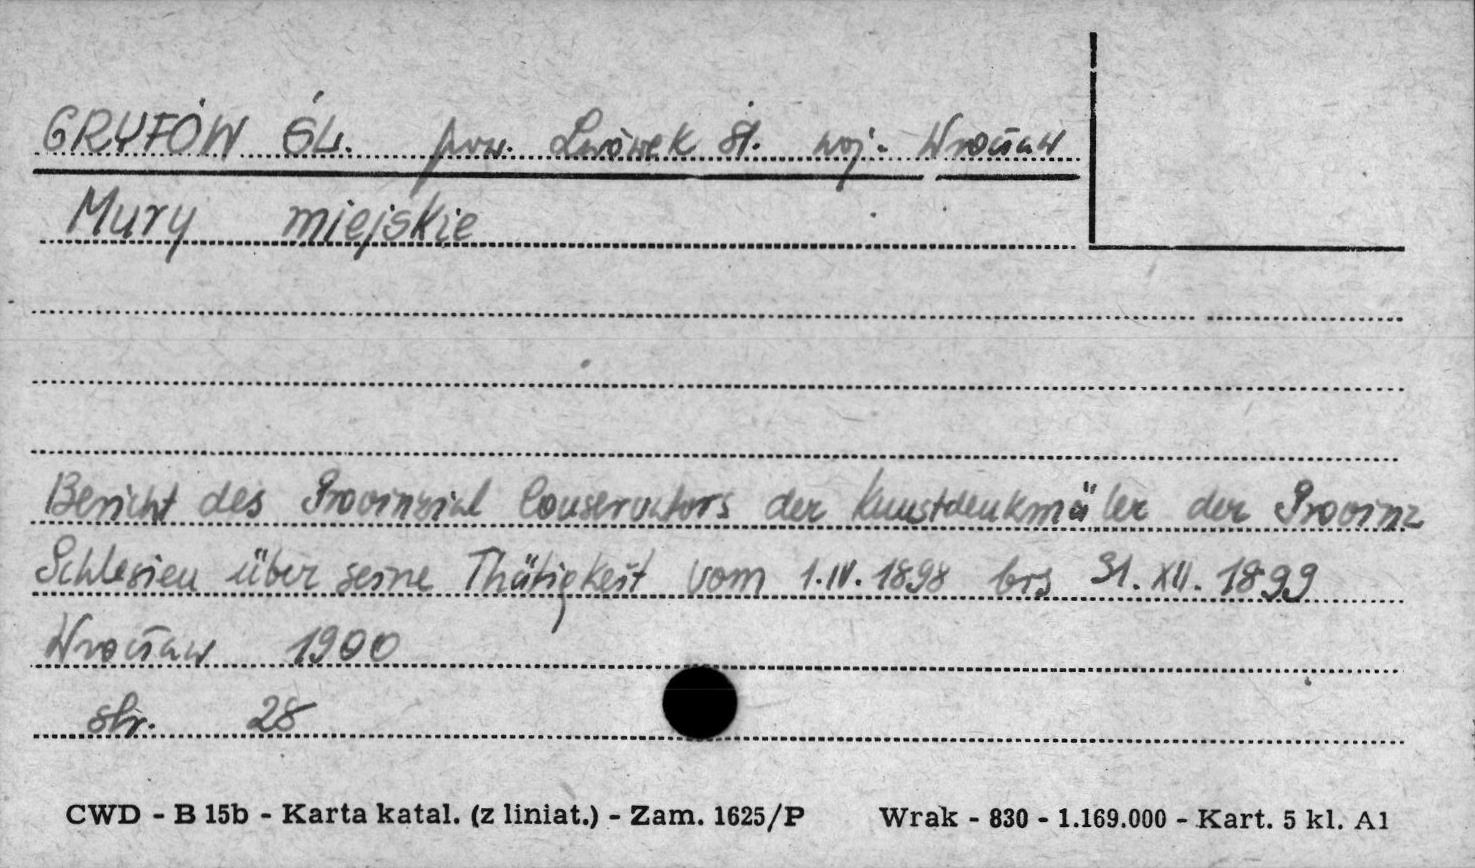 GRYFÓW ŚL. pow. Lwówek Śl. woj. Wrocław
Mury miejskie
Bericht des Provinzial Conservators der Kunstdenkmäler der Provinz
Schlesien über seine Thätigkeit vom 1.IV.1898 bis 31.XII.1899
Wrocław 1900
str. 28
CWD - B 15b - Karta katal. (z liniat.) - Zam. 1625/P Wrak - 830 - 1.169.000 - Kart. 5 kl. A1